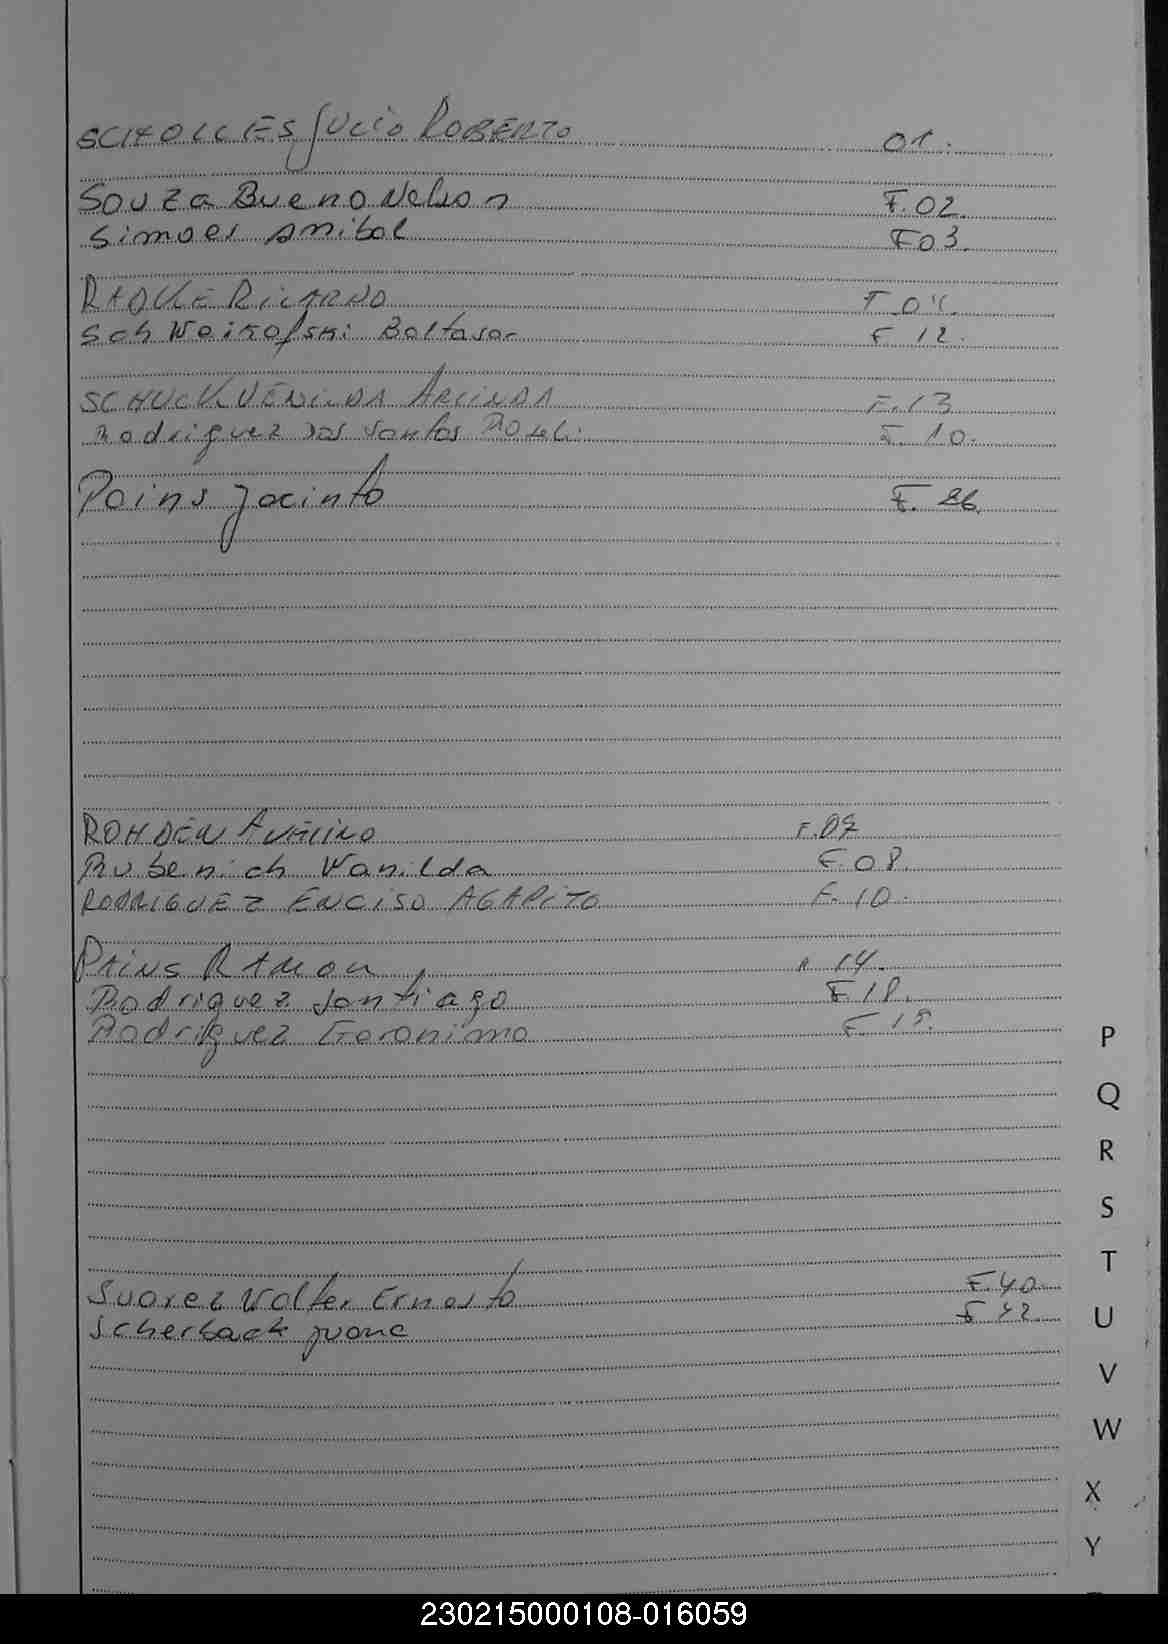 SCHOLLES LUCIO ROBERTO 01.
Souza Bueno Nelson F.02.
Simoes Anibal F03.
RAQUE RICARDO F 04.
Schweikofski Baltasar F 12.
SCHUCK VENILDA ARLINDA F.13
Rodriguez Dos Santos Roseli F. 10.
Poins Jacinto F. 26.
ROHDEN AVELINO F.07
Rubenich Wanilda F.08.
RODRIGUEZ ENCISO AGAPITO F.10.
PAINS RAMON 14.
Rodriguez Santiago F 18.
Rodriguez Geronimo F. 15.
Suarez Walter Ernesto F.40.
Scherback Juana F 42.
P
Q
R
S
T
U
V
W
X
Y
230215000108-016059